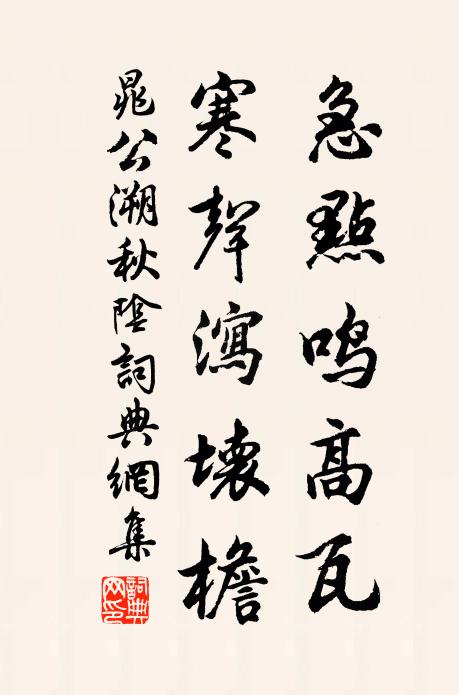 急點鸣高瓦
寒聲瀉壊檐
晁公溯秋陰詞典網集
詞典網印